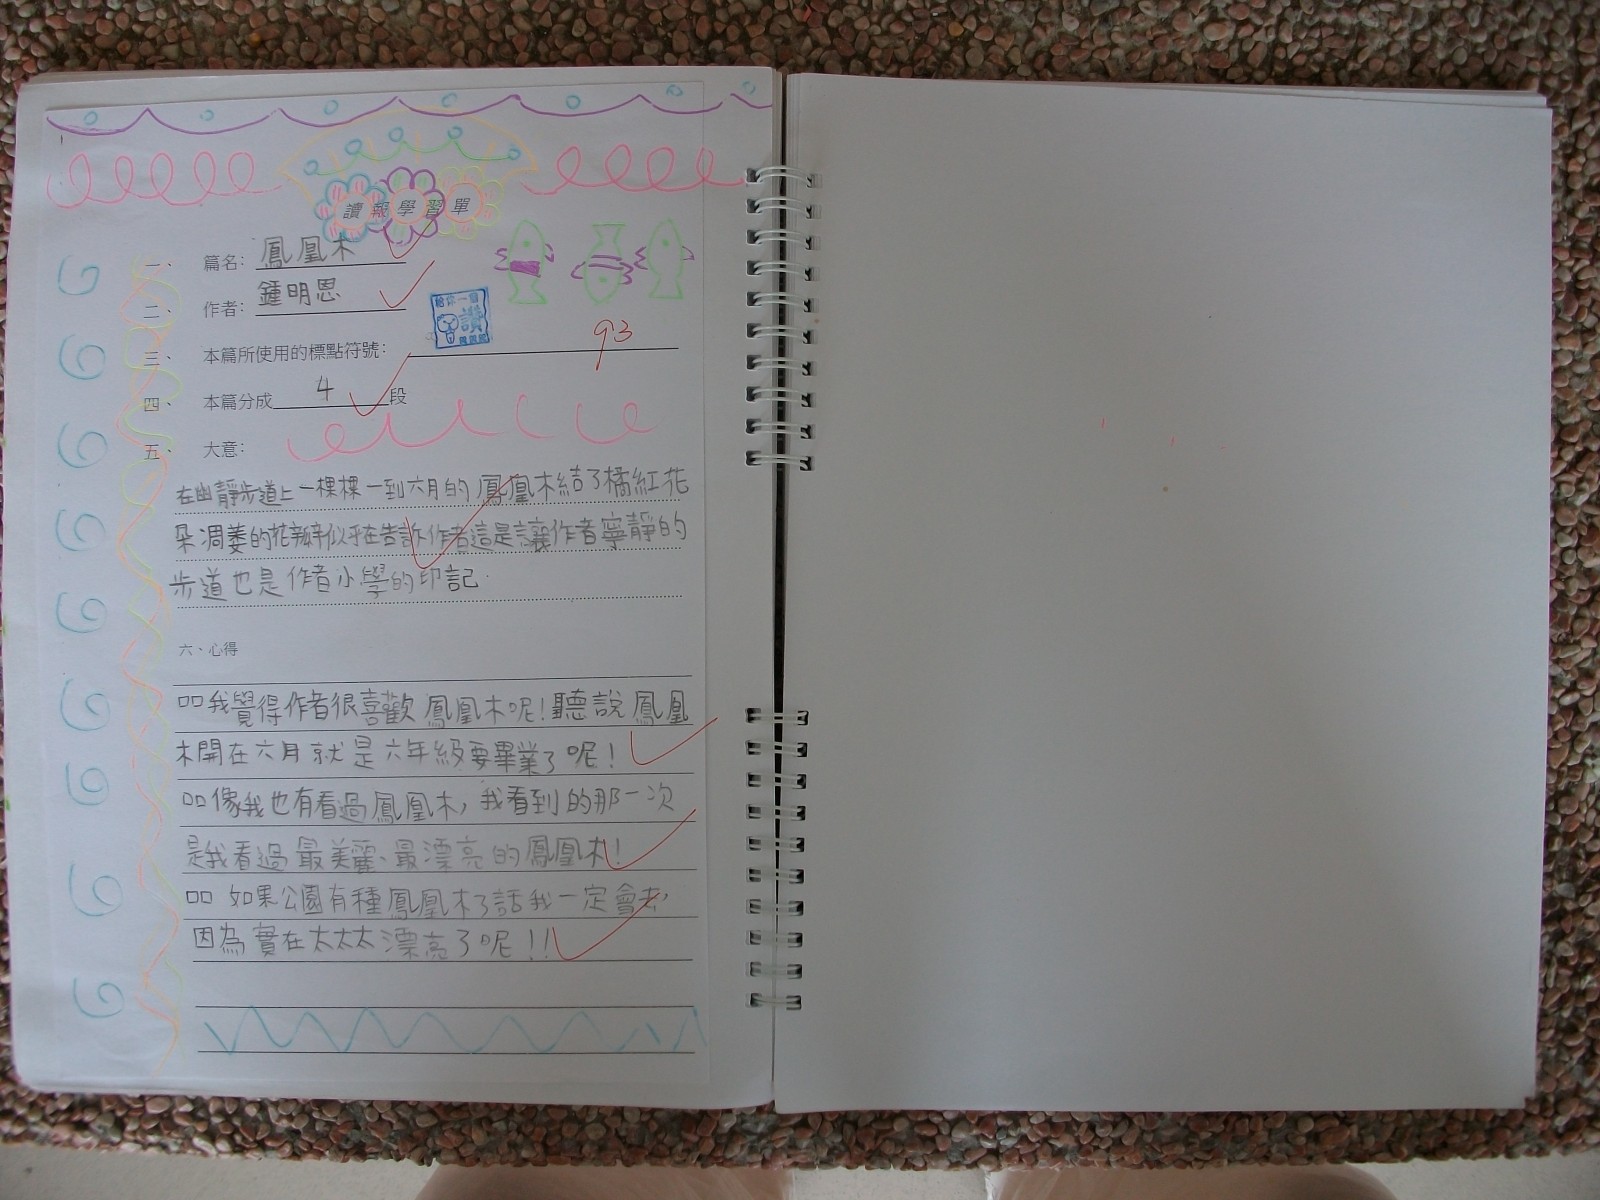 讀報學習單
一、篇名：鳳凰木
二、作者：鍾明恩
給你一個
讚
三、本篇所使用的標點符號：
93
四、本篇分成4段
五、大意：
在幽靜步道上一棵棵一到六月的鳳凰木結了橘紅花
朵凋萎的花瓣似乎在告訴作者這是讓作者寧靜的
步道也是作者小學的印記.
六、心得
口口我覺得作者很喜歡鳳凰木呢!聽說鳳凰
木開在六月就是六年級要畢業了呢!
口口像我也有看過鳳凰木,我看到的那一次
是我看過最美麗、最漂亮的鳳凰木!
口口如果公園有種鳳凰木了話我一定會去,
因為實在太太太漂亮了呢!!